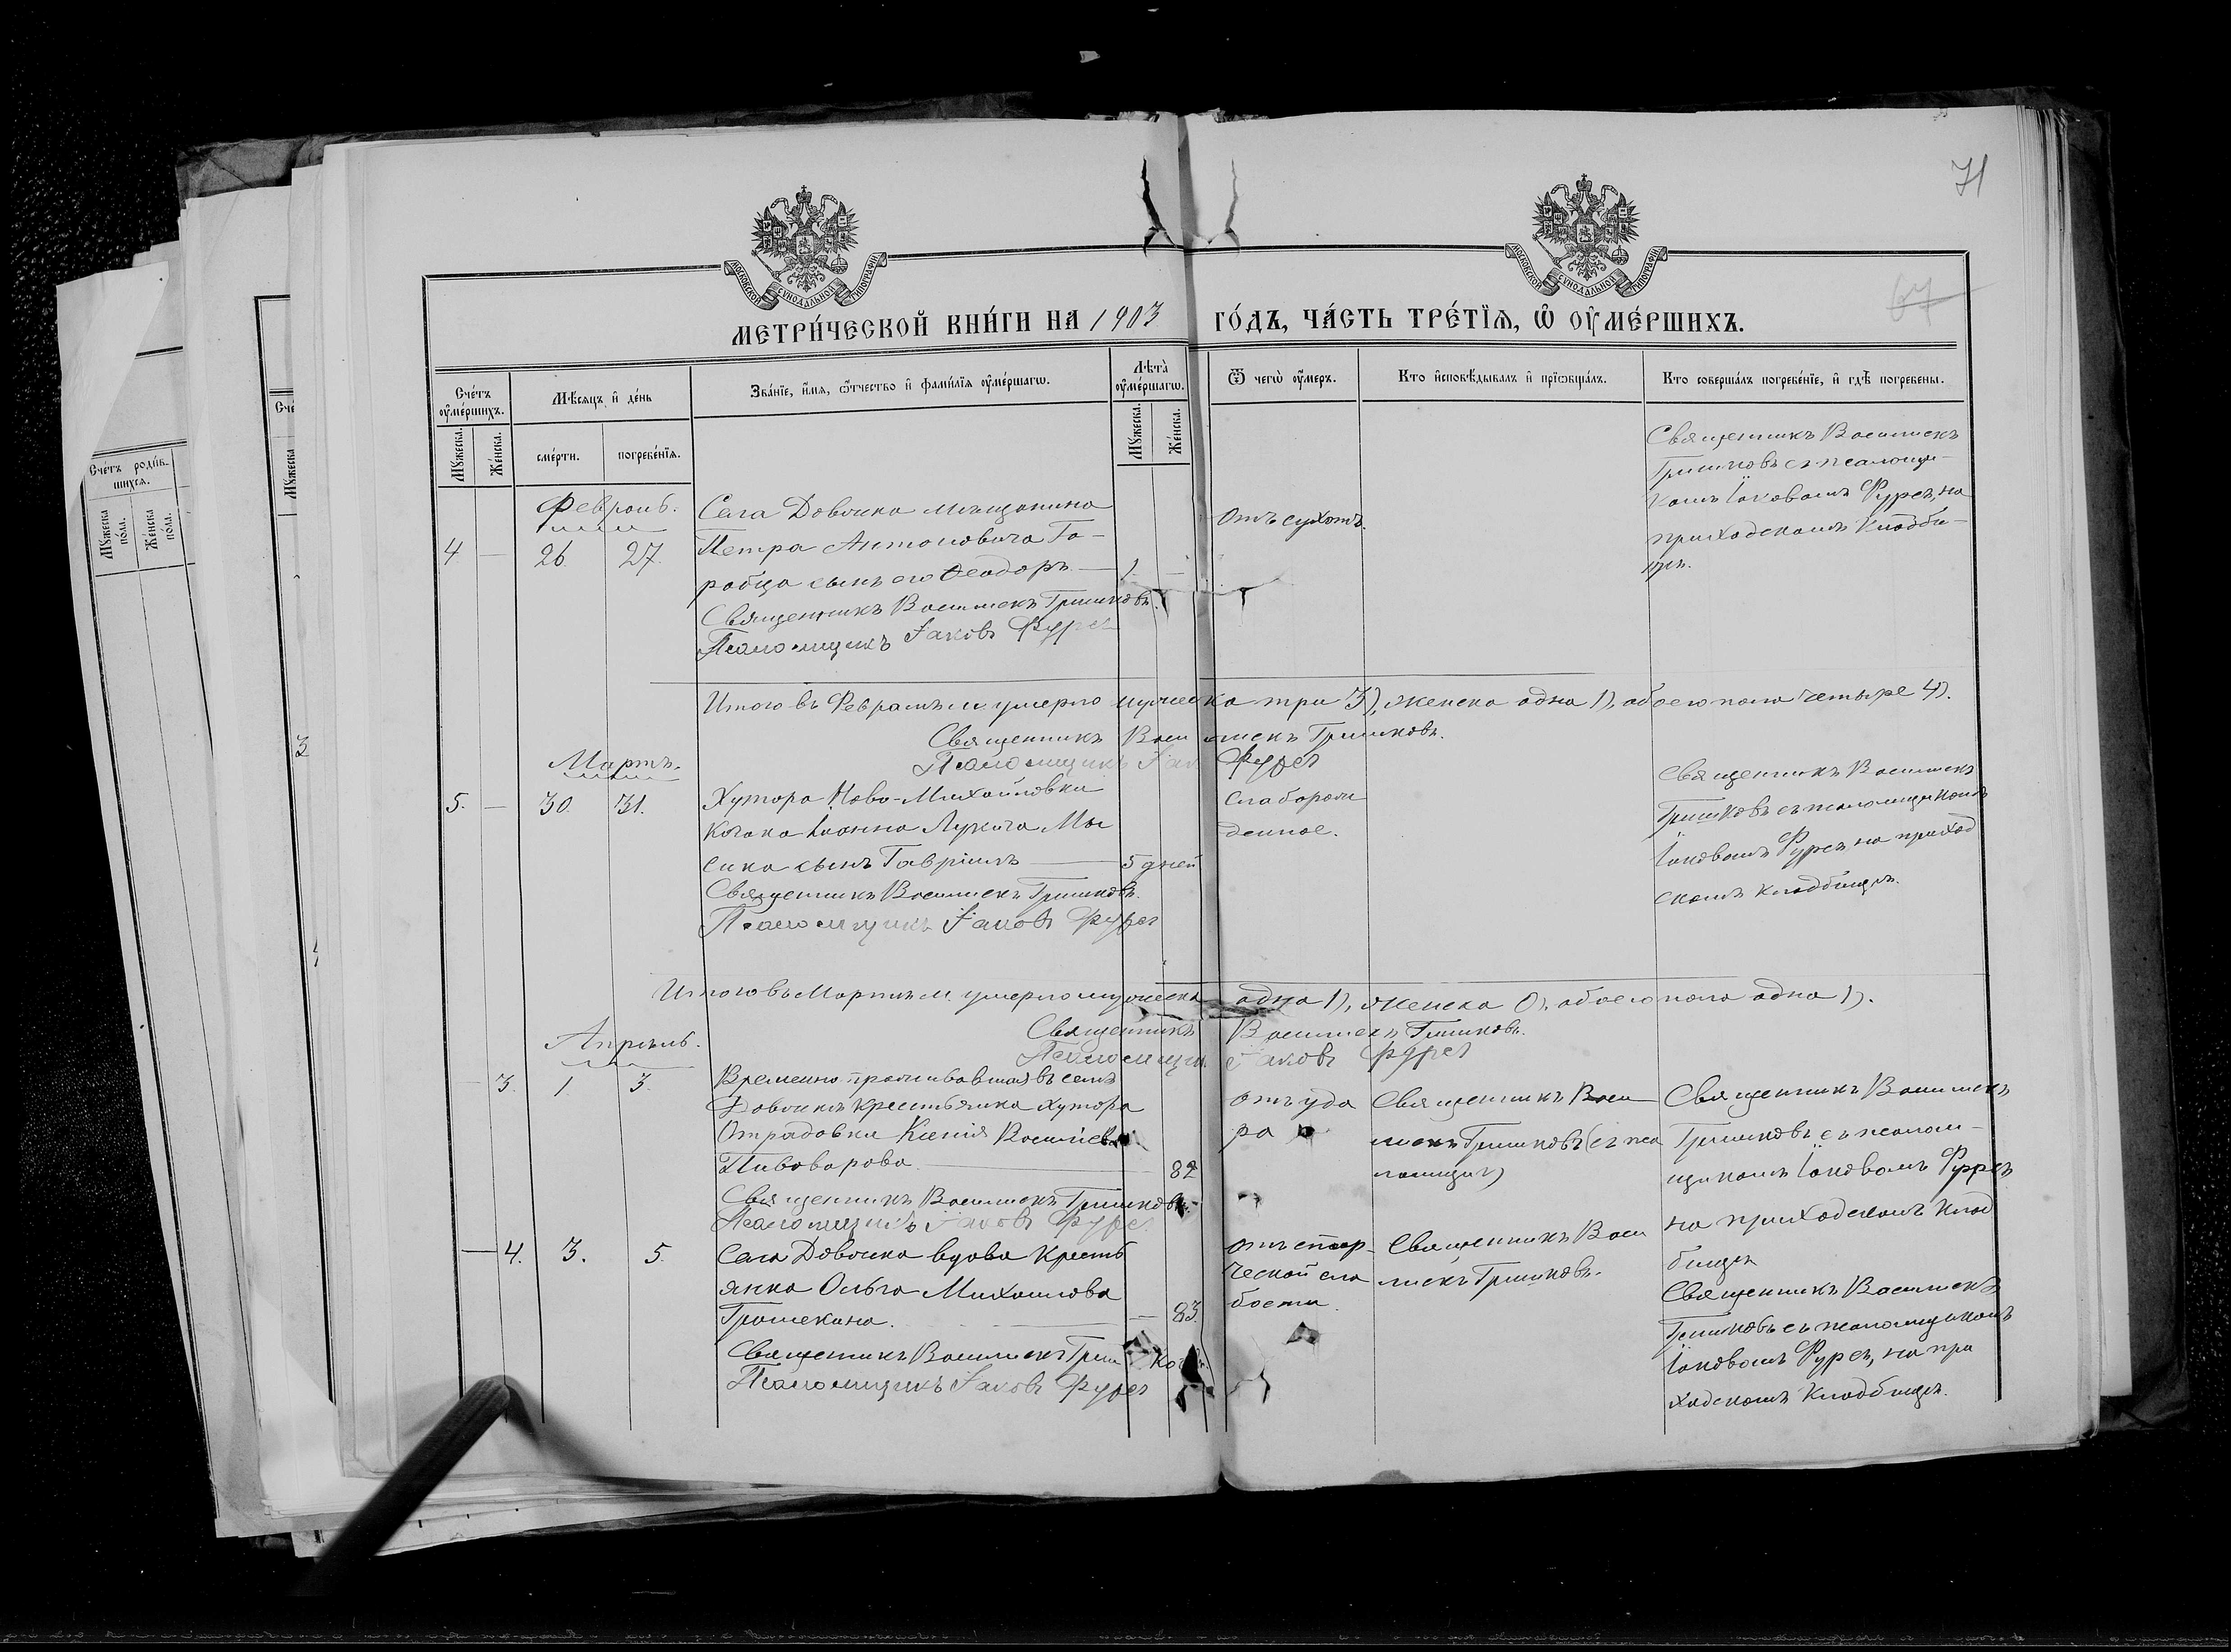 71
67
МОСКОВСКОЙ СѴНОДАЛЬНОЙ ТИПОГРАФІИ
МОСКОВСКОЙ СѴНОДАЛЬНОЙ ТИПОГРАФІИ
МЕТРИ́ЧЕСКОЙ КНИ́ГИ НА 1903 ГО́ДЪ, ЧА́СТЬ ТРЕ́ТІЯ, Ѡ ОУ҆МЕ́РШИХЪ.
Сче́тъ оу҆ме́ршихъ.
Мꙋ́жеска.
Же́нска.
Мѣ́сяцъ и҆ де́нь
сме́рти.
погребе́нїѧ.
Зва́нїе, и҆́мѧ, ѻ҆́тчество и҆ фами́лїѧ оу҆ме́ршагѡ.
Лѣта̀ оу҆ме́ршагѡ.
Мꙋ́жеска.
Же́нска.
Ѿ чегѡ̀ оу҆́меръ.
Кто̀ и҆сповѣ́дывалъ и҆ прїѡбща́лъ.
Кто̀ соверша́лъ погребе́нїе, и҆ гдѣ̀ погребены̀.
Февраль.
4 — 26. 27.
Села Довжика мѣщанина
Петра Антоновича Го-
робца сынъ его Ѳеодоръ — 1. —
Священникъ Василискъ Гришковъ.
Псаломщикъ Іаковъ Фурсъ
отъ сухотъ.
Священникъ Василискъ
Гришковъ съ псаломщи-
комъ Іаковомъ Фурсъ, на
приходскомъ кладби-
щѣ.
Итого въ Февралѣ м. умерло мужеска три 3), женска одна 1), обоего пола четыре 4).
Священникъ Василискъ Гришковъ.
Псаломщикъ Іак Фурсъ
Мартъ.
5. — 30. 31.
Хутора Ново-Михайловки
Козака Іоанна Лукича Мы
сика сынъ Гавріилъ — 5 дней
Священникъ Василискъ Гришковъ.
Псаломщикъ Іаковъ Фурсъ
Слаборож
денное.
Священникъ Василискъ
Гришковъ съ псаломщикомъ
Іаковомъ Фурсъ, на приход
скомъ кладбищѣ.
Итого въ Мартѣ м. умерло мужеска одна 1), женска 0, обоего пола одна 1).
Священникъ Василискъ Гришковъ.
Псаломщикъ Іаковъ Фурсъ
Апрѣль.
— 3. 1 3.
Временно проживавшая въ селѣ
Довжикѣ крестьянка хутора
Отрадовки Ксенія Василіева
Пивоварова — 82
Священникъ Василискъ Гришковъ.
Псаломщикъ Іаковъ Фурсъ
отъ уда
ра
Священникъ Васи
лискъ Гришковъ (съ пса
ломщик)
Священникъ Василискъ
Гришковъ съ псалом-
щикомъ Іаковомъ Фурсъ
на приходскомъ клад
бищѣ
— 4. 3. 5.
Села Довжика вдова кресть
янка Ольга Михаилова
Грошекина. — 83.
Священникъ Василискъ Гриш ко
Псаломщикъ Іаковъ Фурсъ
отъ стар-
ческой сла
бости.
Священникъ Васи
лискъ Гришковъ.
Священникъ Василискъ
Гришковъ съ псаломщикомъ
Іаковомъ Фурсъ, на при
ходскомъ кладбищѣ.
Сче́тъ роди́вшихсѧ.
Мꙋ́жеска по́ла.
Же́нска по́ла.
Сче́
Мꙋ́жеска
3